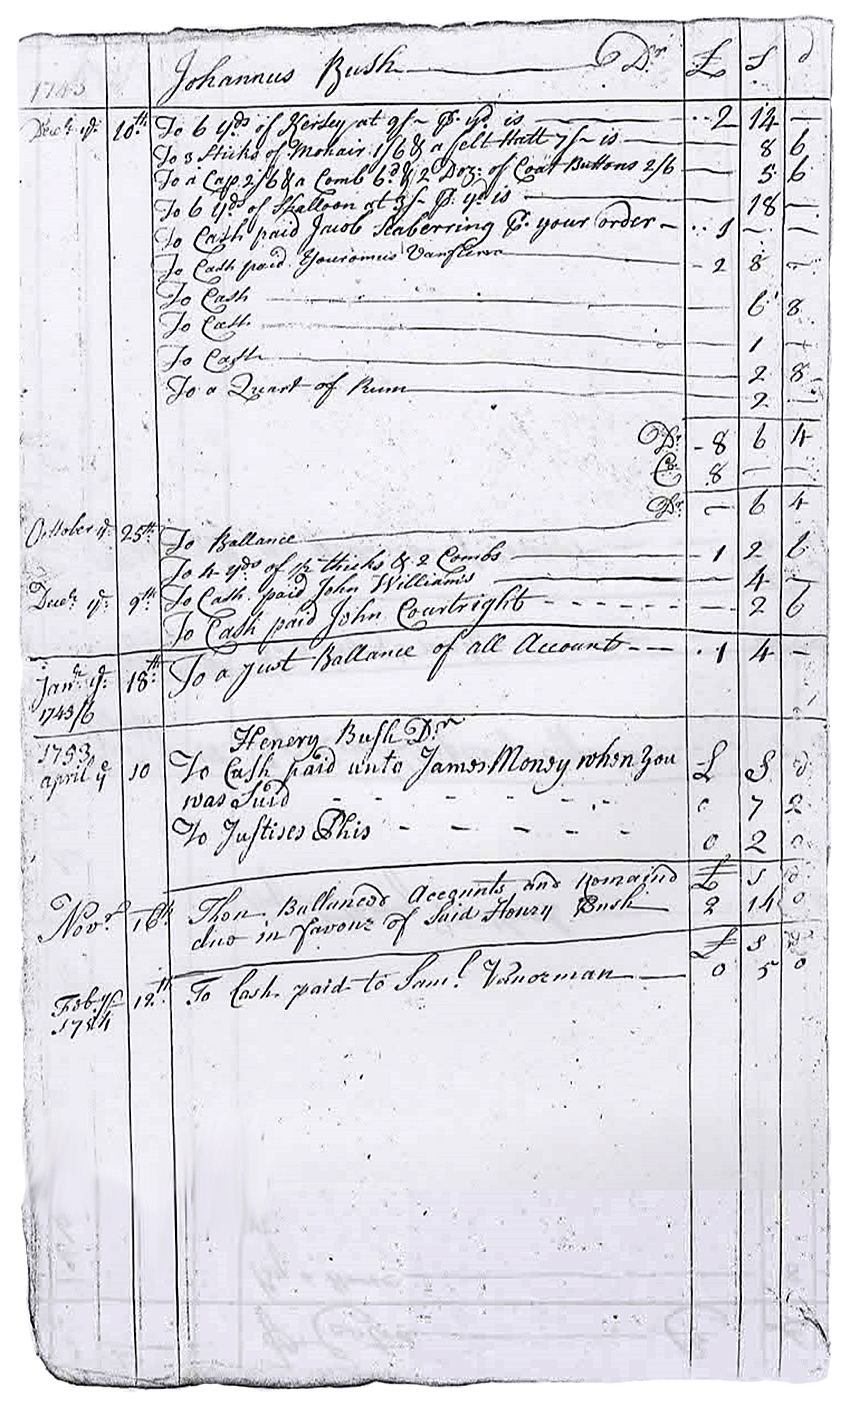 1743 Johannus Bush Dr £ s d
Decr ye 10th To 6 yds of Kersey at 9/- P. yd is 2 14 —
To 3 Sticks of Mohair 1/6 & a felt Hatt 7/- is — 8 6
To a Cap 2/6 & a Comb 6d & 2 Doz: of Coat Buttons 2/6 — 5 6
To 6 yds of Shalloon at 3/- P. yd is 18 —
To Cash paid Jacob Seaberring P. your order — 1 — —
To Cash paid Youromus 2 8 —
To Cash — 6 8
To Cash — 1 —
To Cash — 2 8
To a Quart of Rum — 2 —
Dr. 8 6 4
Cr. 8 — —
Dr. — 6 4
October ye 25th To Ballance
To 4 yds of thicks & 2 Combs — 1 2 6
Decr ye 9th To Cash paid John Williams — 4 —
To Cash paid John Courtright — 2 6
Janr ye 18th To a just Ballance of all Account — 1 4 —
1745/6
1753 Henery Bush Dr
April ye 10 To Cash paid unto James Money when you £ s d
was Suid 0 7 2
To Justises this 0 2 0
£ s d
Novr 16th Then Ballanced Accounts and Remaind 2 14 0
due in favour of Said Henry Bush
£ s d
Feb ye 12th To Cash paid to Saml. Vanorman — 0 5 0
1754